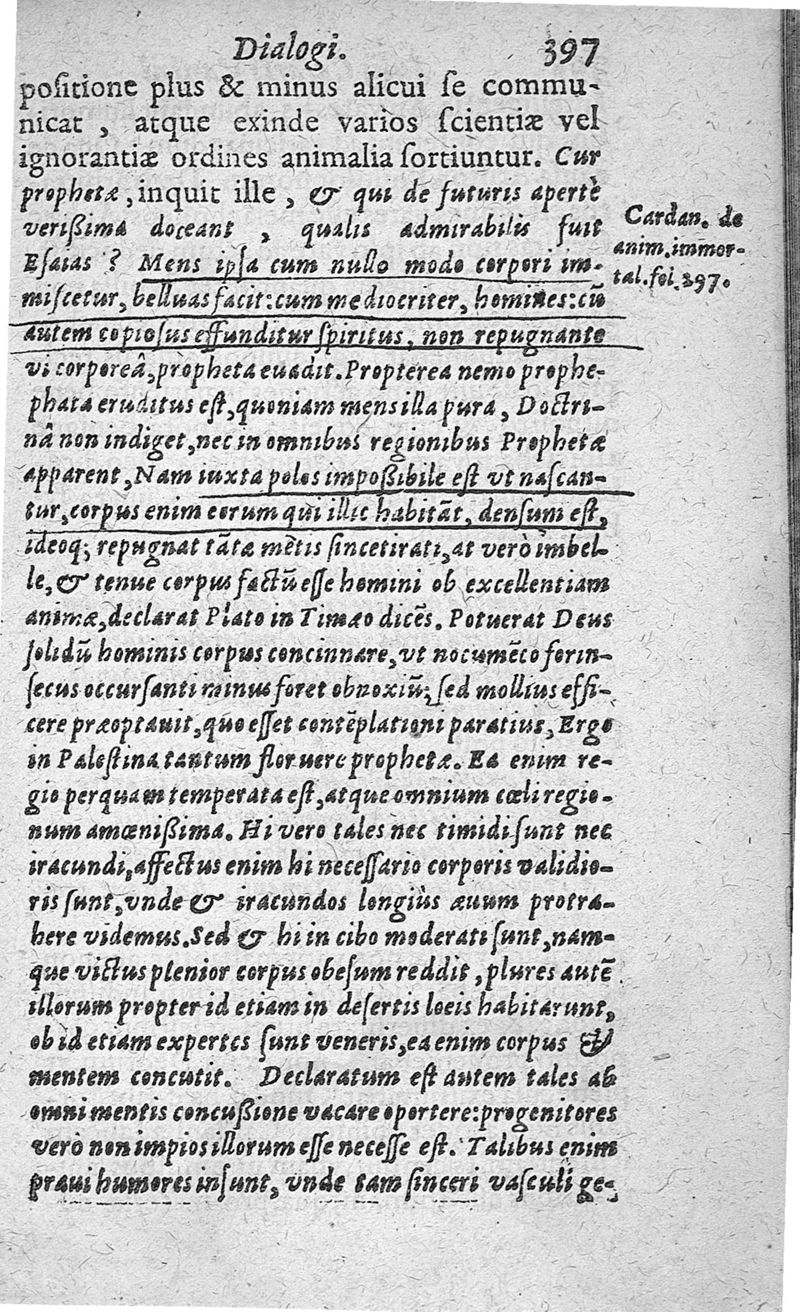 Dialogi. 397
positione plus & minus alicui se commu-
nicat, atque exinde varios scientiæ vel
ignorantiæ ordines animalia sortiuntur. Cur
prophetæ, inquit ille, & qui de futuris apertè
verißima doceant, qualis admirabilis fuit
Esaias? Mens ipsa cum nullo modo corpori im-
miscetur, belluas facit: cum mediocriter, homines: cū
autem copiosus effunditur spiritus, non repugnante
vi corporeâ, propheta euadit. Propterea nemo prophe-
phata eruditus est, quoniam mens illa pura, Doctri-
nâ non indiget, nec in omnibus regionibus Prophetæ
apparent, Nam iuxta polos impoßibile est vt nascan-
tur, corpus enim eorum qui illic habitāt, densum est,
ideoq; repugnat tātæ mētis sincetirati, at verò imbel-
le, & tenue corpus factū esse homini ob excellentiam
animæ, declarat Plato in Timæo dicēs. Potuerat Deus
solidū hominis corpus concinnare, vt nocumēto forin-
secus occursanti minus foret obnoxiū; sed mollius effi-
cere præoptauit, quo esset contēplationi paratius, Ergo
in Palestina tantum floruere prophetæ. Ea enim re-
gio perquam temperata est, atque omnium cœli regio-
num amœnißima. Hi vero tales nec timidi sunt nec
iracundi, affectus enim hi necessario corporis validio-
ris sunt, vnde & iracundos longiùs æuum protra-
here videmus. Sed & hi in cibo moderati sunt, nam-
que victus plenior corpus obesum reddit, plures autē
illorum propter id etiam in desertis locis habitarunt,
ob id etiam expertes sunt veneris, ea enim corpus &
mentem concutit. Declaratum est autem tales ab
omni mentis concußione vacare oportere: progenitores
verò non impios illorum esse necesse est. Talibus enim
praui humores insunt, vnde tam sinceri vasculi ge-
Cardan. de
anim. immor-
tal. fol. 297.